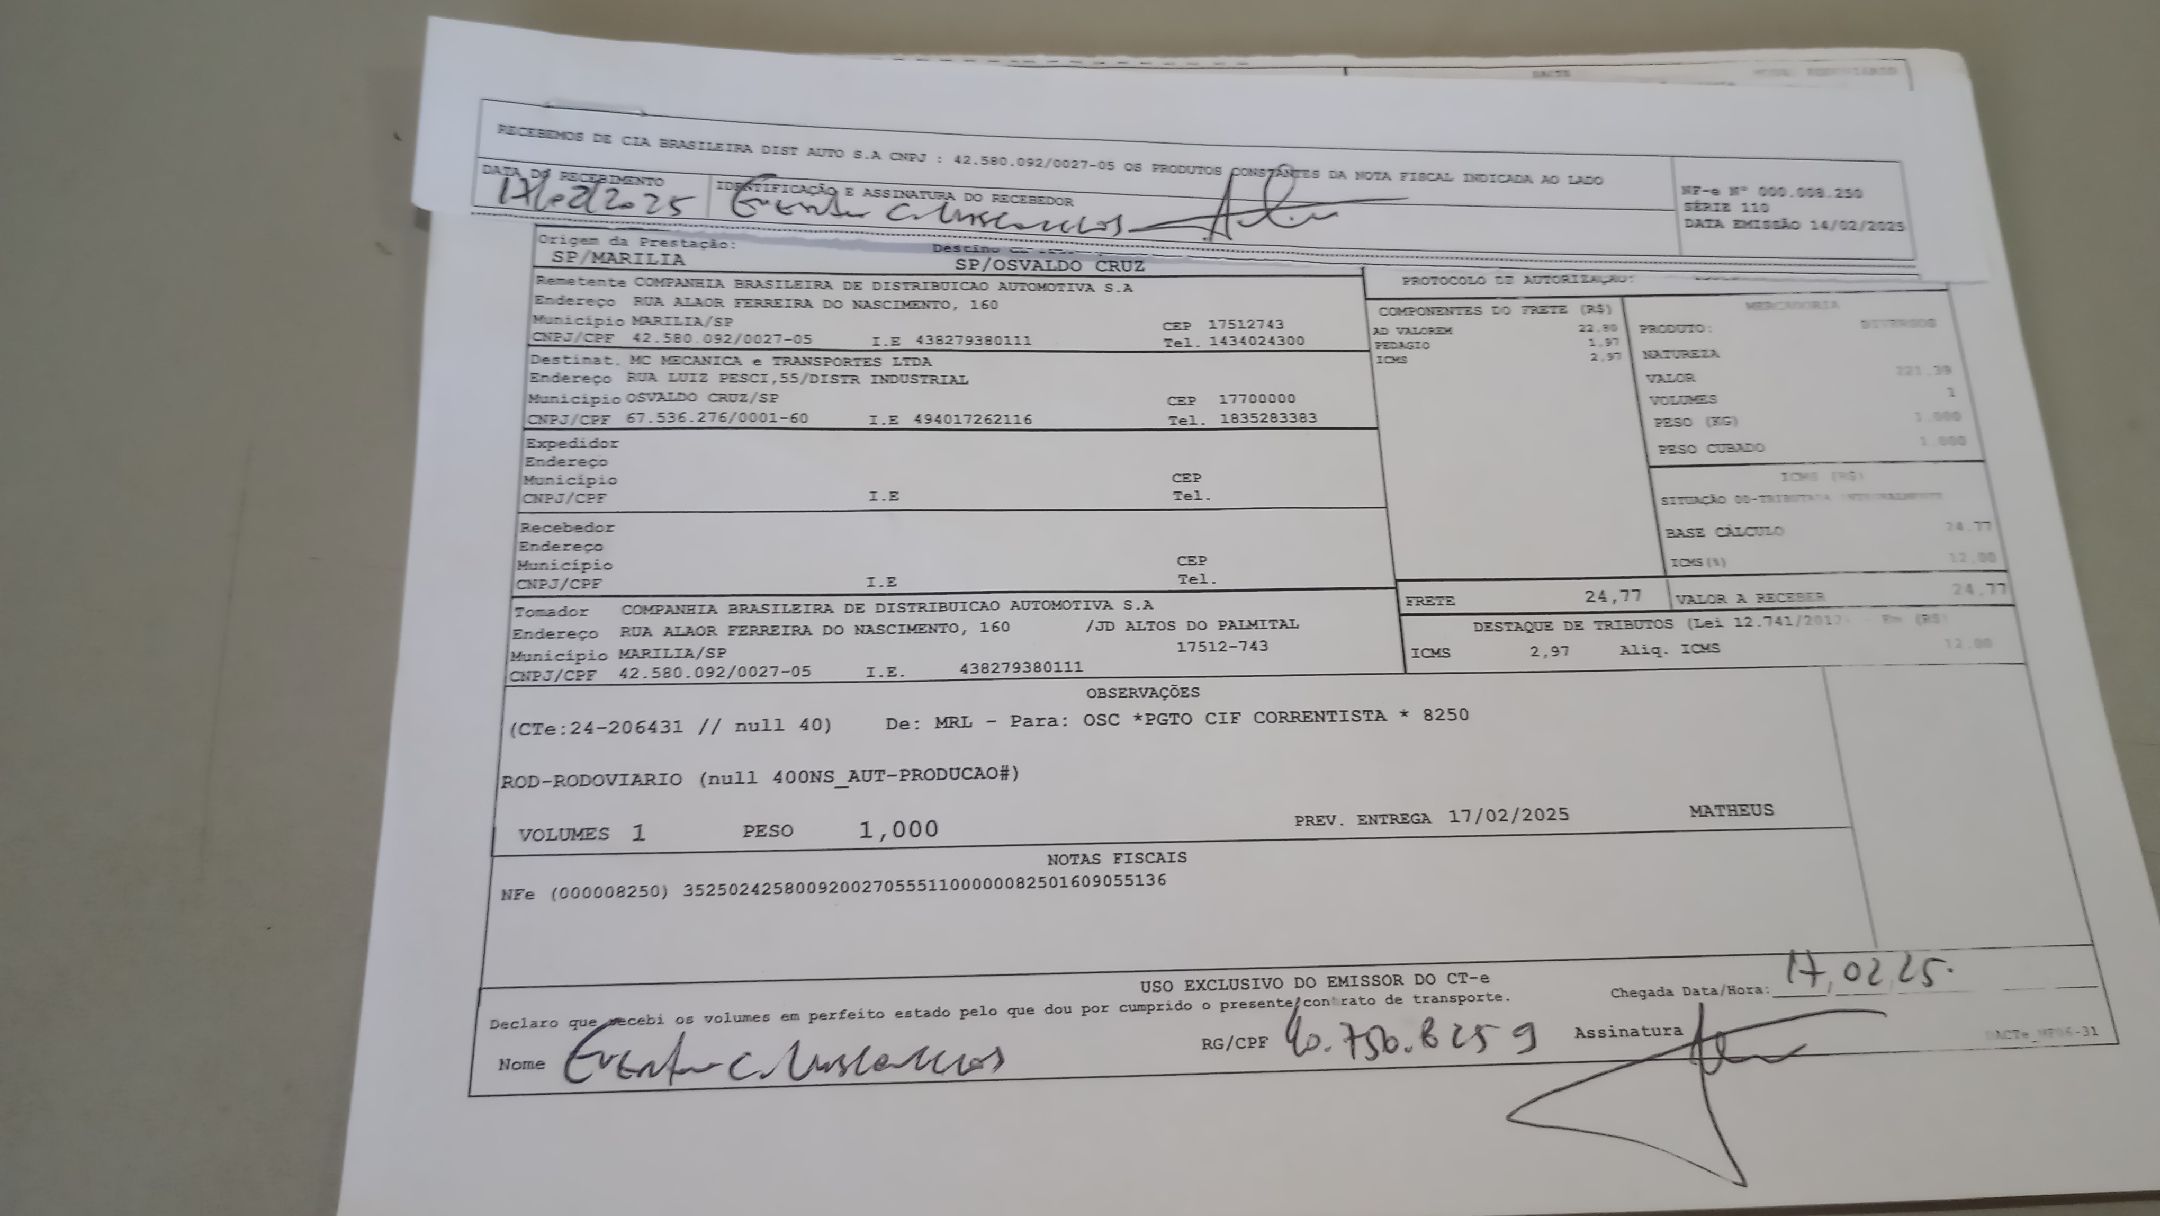 DACTE
RECEBEMOS DE CIA BRASILEIRA DIST AUTO S.A CNPJ : 42.580.092/0027-05 OS PRODUTOS CONSTANTES DA NOTA FISCAL INDICADA AO LADO
DATA DO RECEBIMENTO IDENTIFICAÇÃO E ASSINATURA DO RECEBEDOR
17/02/2025
NF-e Nº 000.008.250
SÉRIE 110
DATA EMISSÃO 14/02/2025
Origem da Prestação: Destino
SP/MARILIA SP/OSVALDO CRUZ
Remetente COMPANHIA BRASILEIRA DE DISTRIBUICAO AUTOMOTIVA S.A
Endereço RUA ALAOR FERREIRA DO NASCIMENTO, 160
Município MARILIA/SP CEP 17512743
CNPJ/CPF 42.580.092/0027-05 I.E 438279380111 Tel. 1434024300
Destinat. MC MECANICA e TRANSPORTES LTDA
Endereço RUA LUIZ PESCI,55/DISTR INDUSTRIAL
Município OSVALDO CRUZ/SP CEP 17700000
CNPJ/CPF 67.536.276/0001-60 I.E 494017262116 Tel. 1835283383
Expedidor
Endereço
Município CEP
CNPJ/CPF I.E Tel.
Recebedor
Endereço
Município CEP
CNPJ/CPF I.E Tel.
Tomador COMPANHIA BRASILEIRA DE DISTRIBUICAO AUTOMOTIVA S.A
Endereço RUA ALAOR FERREIRA DO NASCIMENTO, 160 /JD ALTOS DO PALMITAL
Município MARILIA/SP 17512-743
CNPJ/CPF 42.580.092/0027-05 I.E. 438279380111
PROTOCOLO DE AUTORIZAÇÃO:
COMPONENTES DO FRETE (R$)
AD VALOREM 22,80
PEDAGIO 1,97
ICMS 2,97
MERCADORIA
PRODUTO: DIVERSOS
NATUREZA
VALOR 221,39
VOLUMES 1
PESO (KG) 1,000
PESO CUBADO 1,000
ICMS (R$)
SITUAÇÃO 00-TRIBUTADA INTEGRALMENTE
BASE CÁLCULO 24,77
ICMS(%) 12,00
FRETE 24,77 VALOR A RECEBER 24,77
DESTAQUE DE TRIBUTOS (Lei 12.741/2012 - Em (R$)
ICMS 2,97 Aliq. ICMS 12,00
OBSERVAÇÕES
(CTe:24-206431 // null 40) De: MRL - Para: OSC *PGTO CIF CORRENTISTA * 8250
ROD-RODOVIARIO (null 400NS_AUT-PRODUCAO#)
VOLUMES 1 PESO 1,000 PREV. ENTREGA 17/02/2025 MATHEUS
NOTAS FISCAIS
NFe (000008250) 35250242580092002705551100000082501609055136
USO EXCLUSIVO DO EMISSOR DO CT-e
Declaro que recebi os volumes em perfeito estado pelo que dou por cumprido o presente contrato de transporte.
Chegada Data/Hora: 17,02,25.
Nome RG/CPF 40.750.825 9 Assinatura